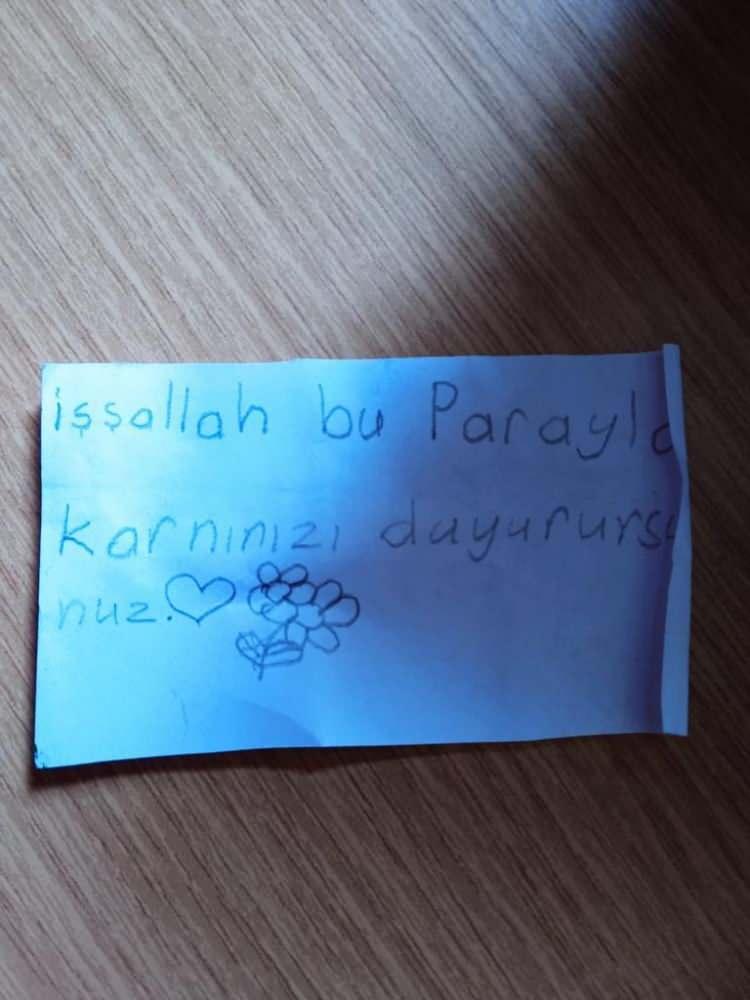 işşallah bu Parayla
karnınızı duyurursu
nuz.